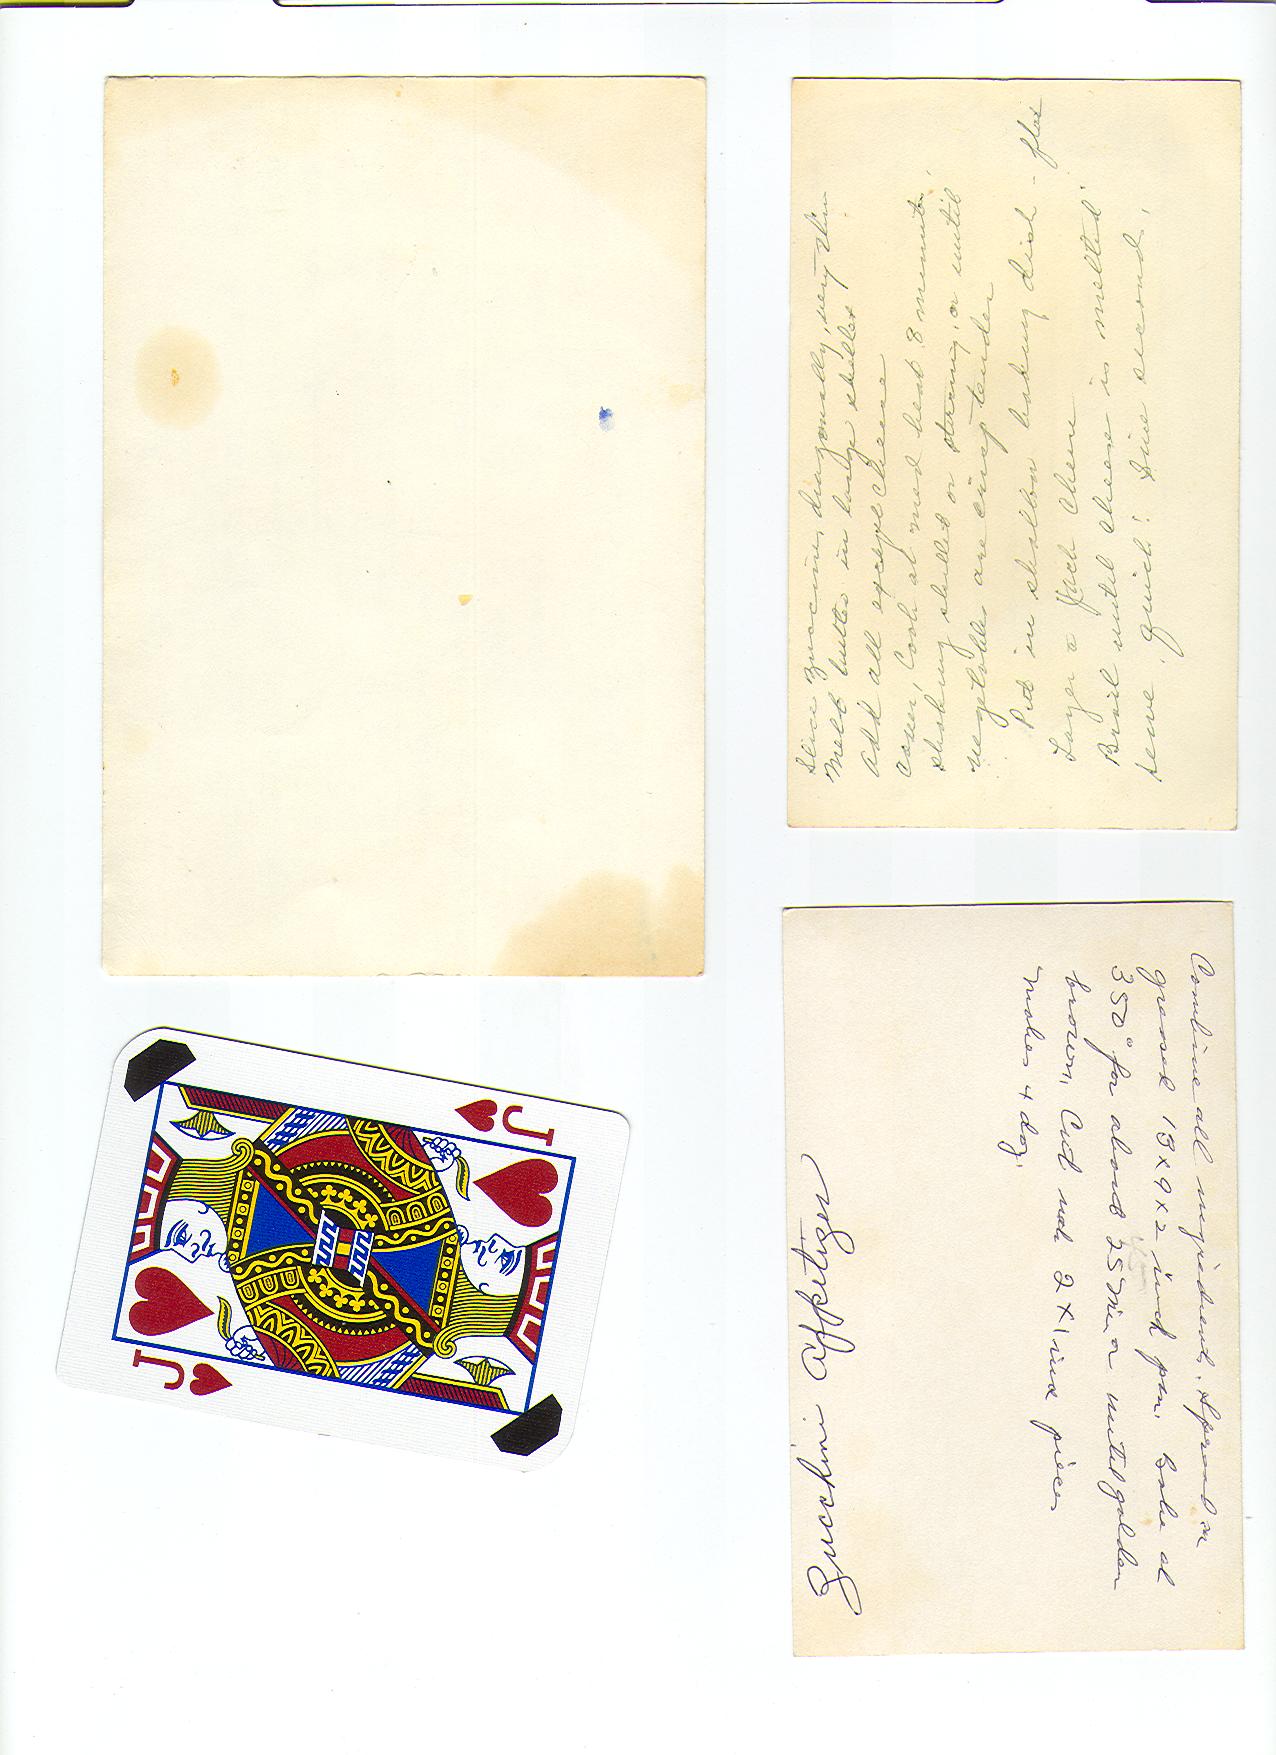 Slice zuccinni diagonally, very thin
Melt butter in large skillet
Add all except cheese
cover, Cook at med heat 8 minutes,
shaking skillet or stirring, or until
vegetables are crisp tender
Put in shallow baking dish - flat
Layer a Jack cheese
Broil until cheese is melted
serve, quick!
Combine all ingredients, Spread in
greased 13x9x2 inch pan. Bake at
350° for about 25 min or until golden
brown. Cut into 2 x 1 inch pieces
makes 4 doz.
Zucchini Appetizer
J
J